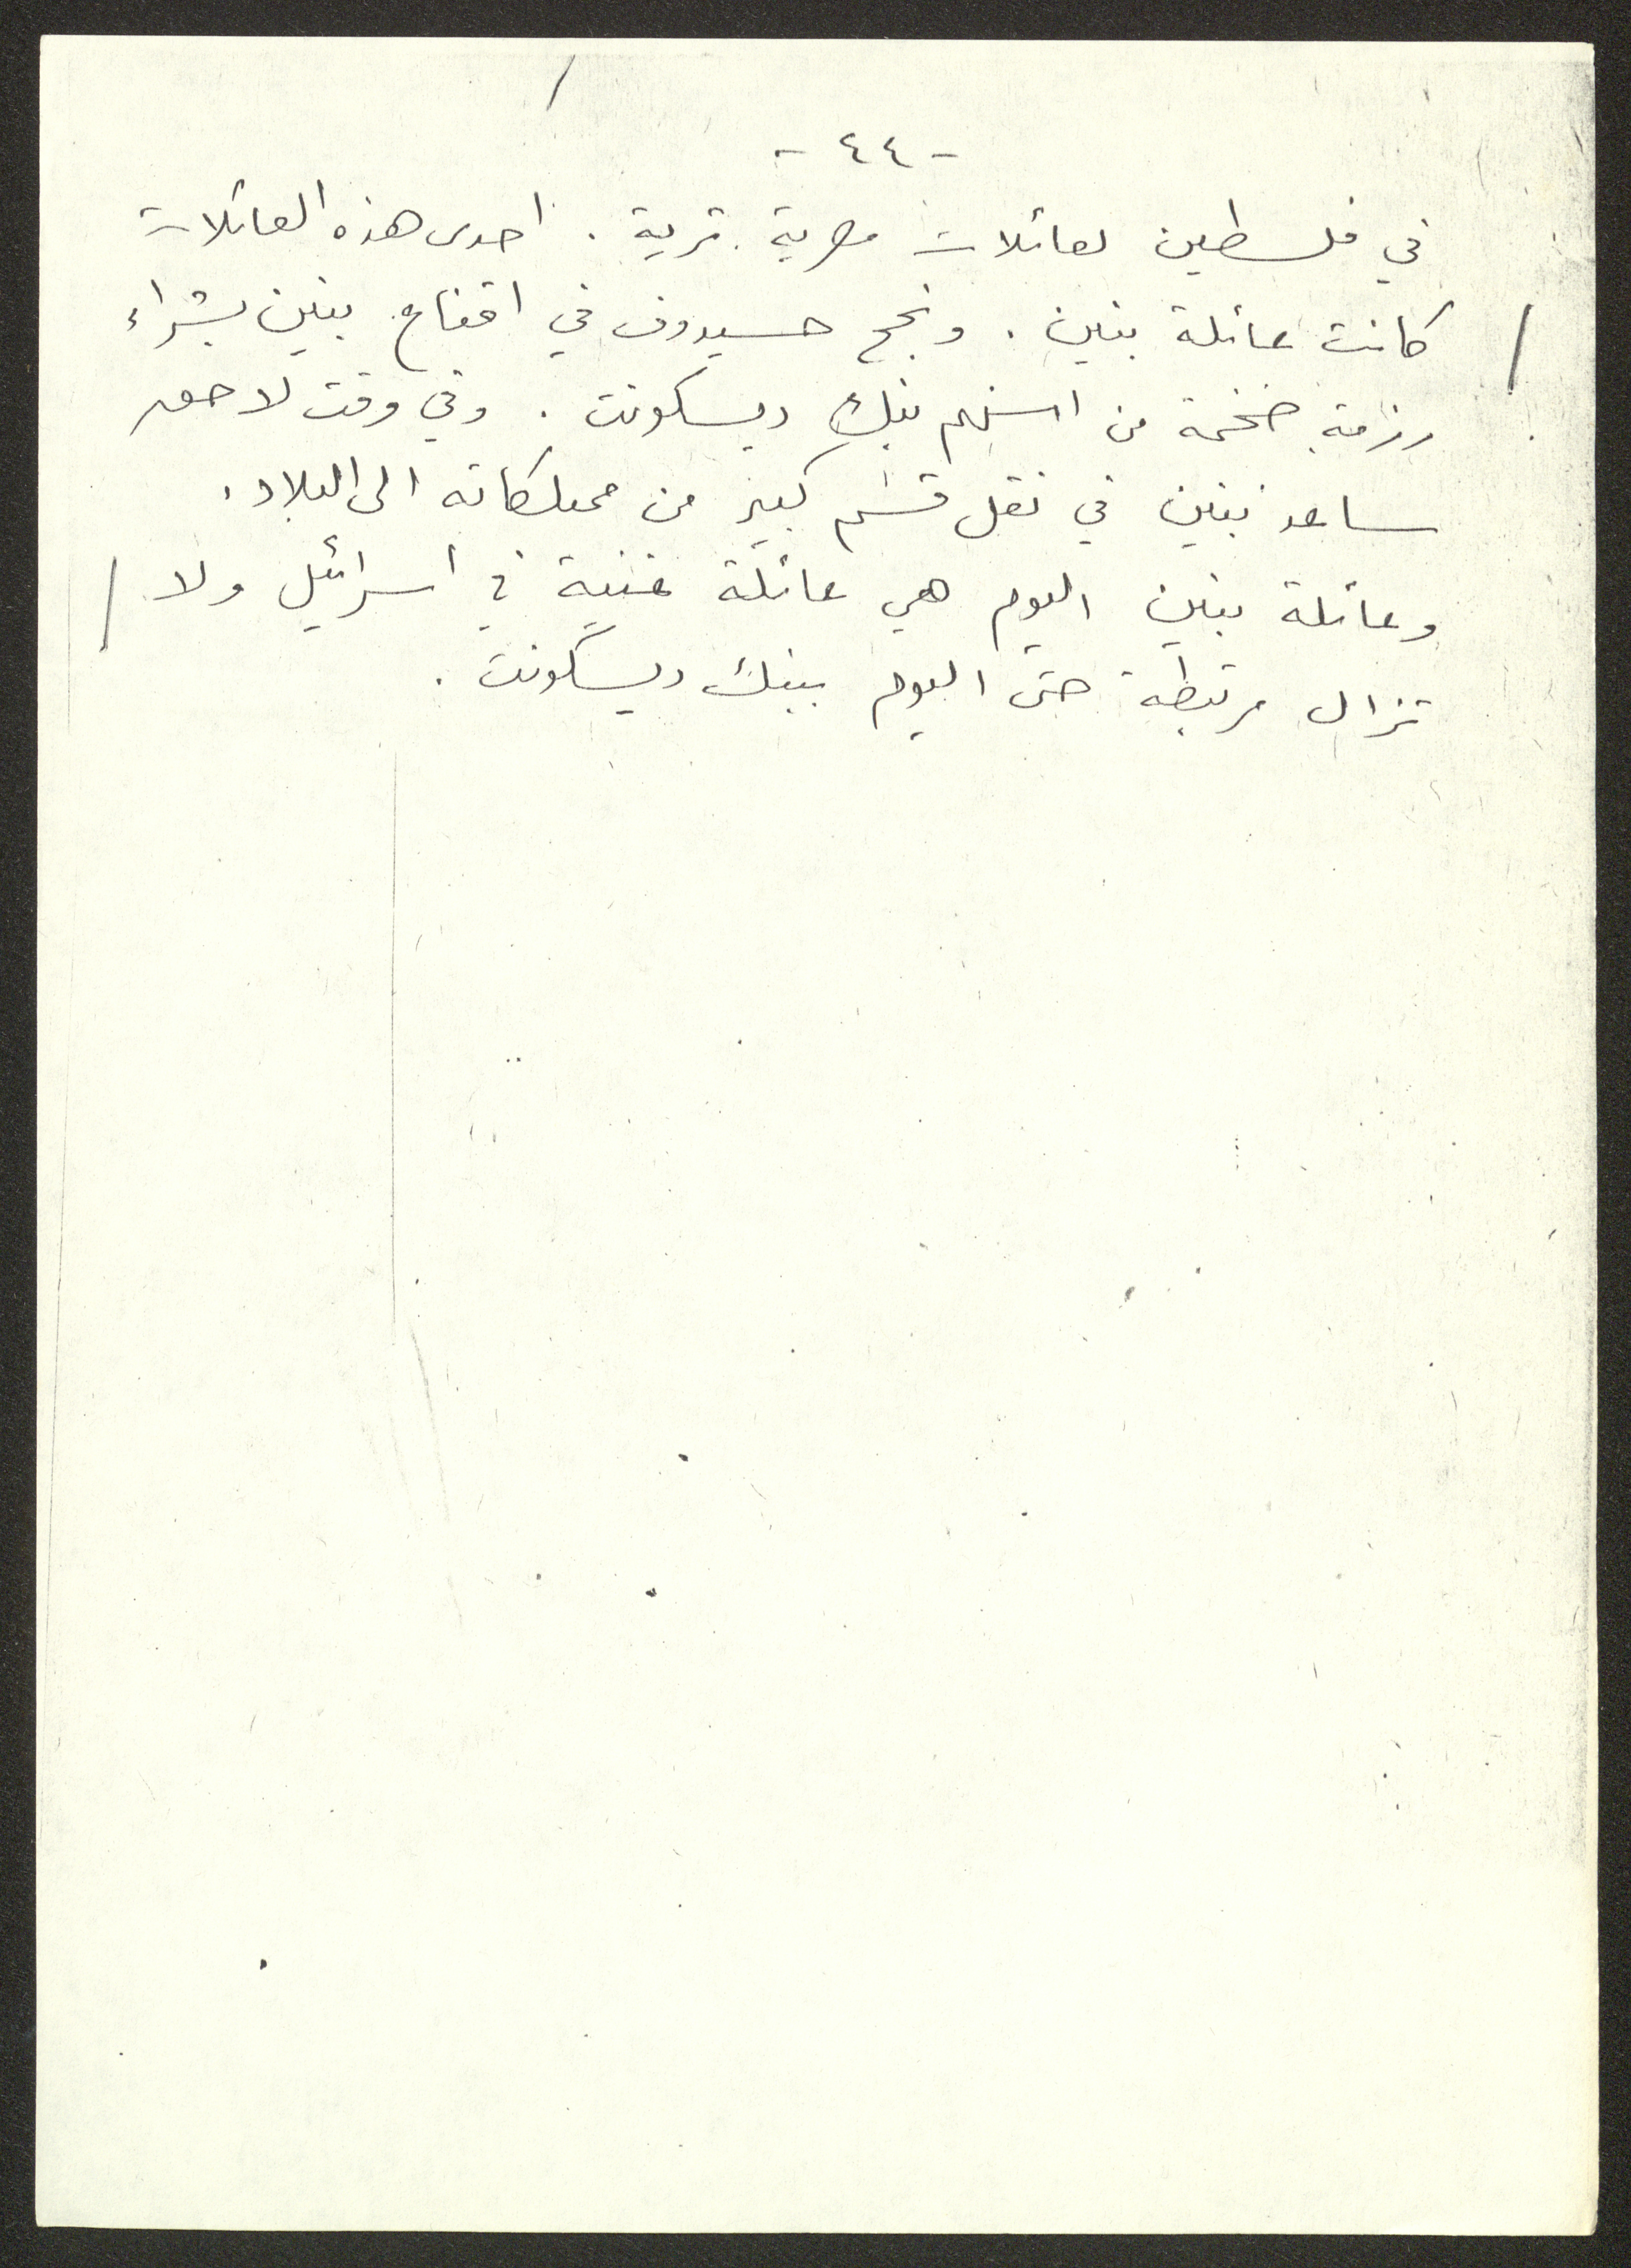 - ٤٤ -
في فلسطين لعائلات مصرية ثرية . احدى هذه العائلات
كانت عائلة بنين . ونجح حسيدوف في اقناع بنين بشراء
رزمة ضخمة من اسهم بنك ديسكونت . وفي وقت لاحق
ساعد بنين في نقل قسم كبير من ممتلكاته الى البلاد .
وعائلة بنين اليوم هي عائلة غنية في اسرائيل ولا
تزال مرتبطة حتى اليوم ببنك ديسكونت .